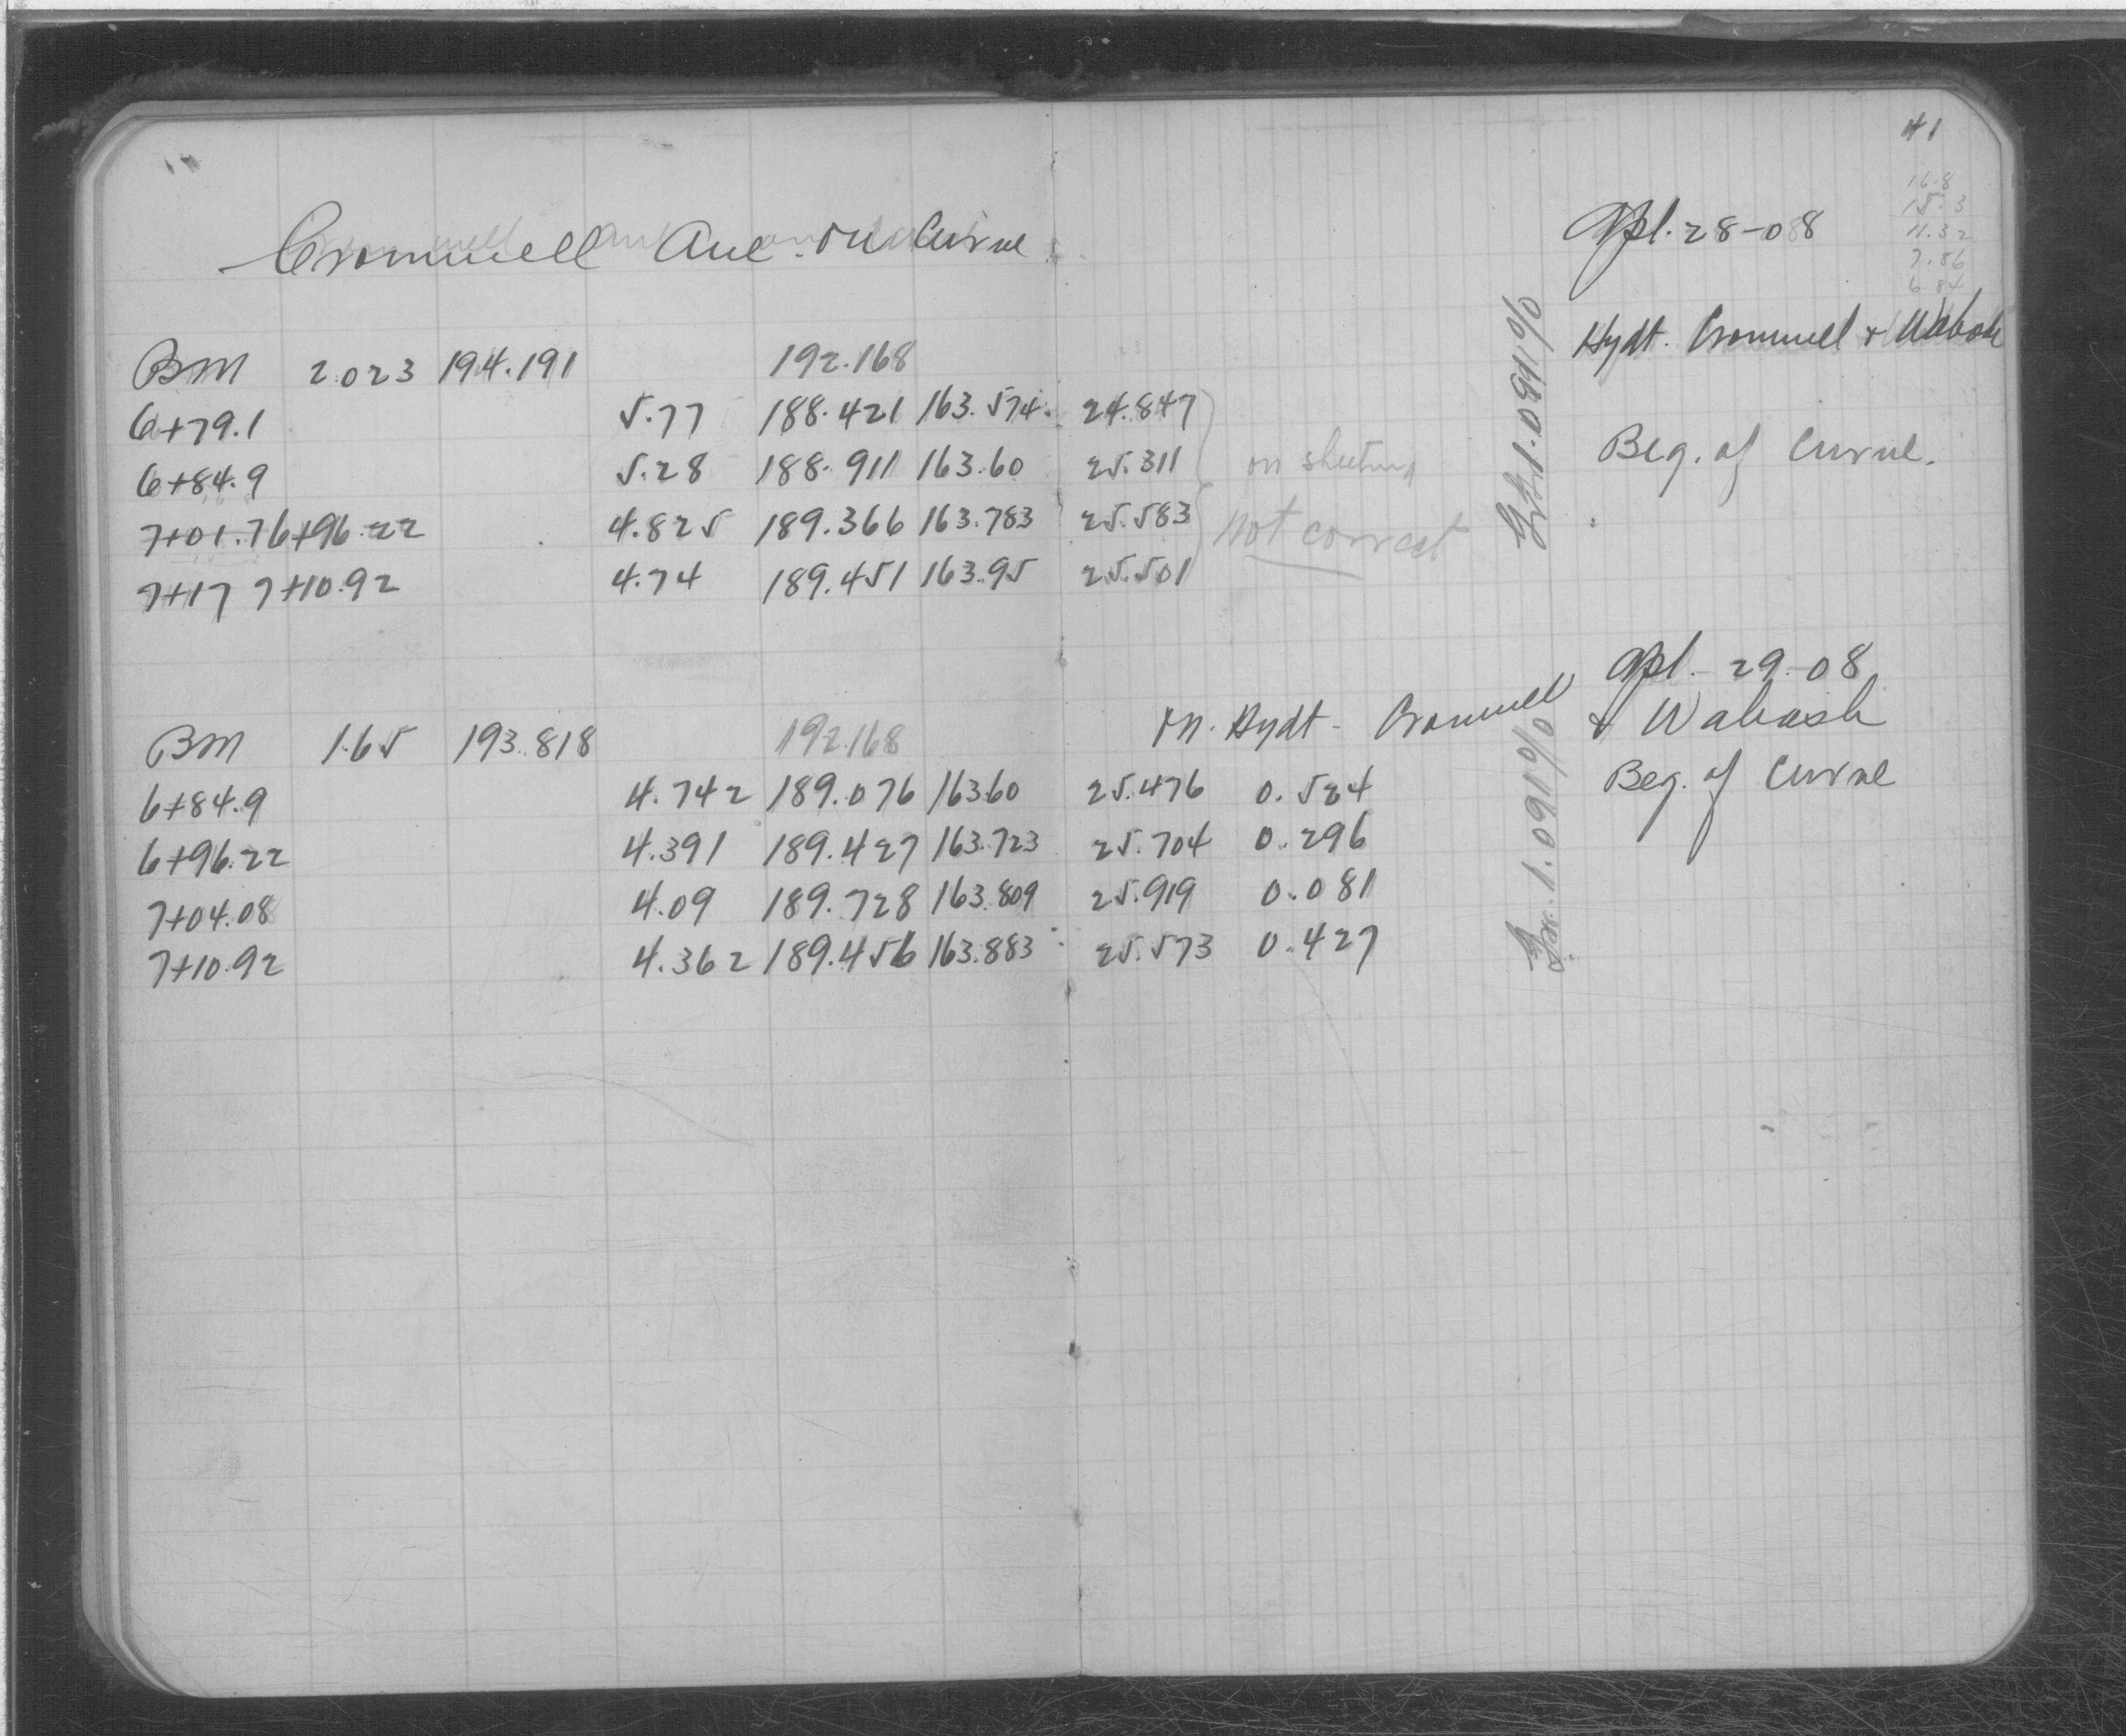 41
16.8
15.3
11.32
7.86
6.84
Cromwell Ave. on Curve
Apl. 28-08
BM 2.023 194.191 192.168 Hydt. Cromwell & Wabash
6+79.1 5.77 188.421 163.574 24.847
6+84.9 5.28 188.911 163.60 25.311 on sheeting Beg. of Curve.
7+01.7 6+96.22 4.825 189.366 163.783 25.583 not correct
7+17 7+10.92 4.74 189.451 163.95 25.501
1.091%
Apl. 29-08
BM 1.65 193.818 192.168 on Hydt - Cromwell & Wabash
6+84.9 4.742 189.076 163.60 25.476 0.524 Beg. of Curve
6+96.22 4.391 189.427 163.723 25.704 0.296
7+04.08 4.09 189.728 163.809 25.919 0.081
7+10.92 4.362 189.456 163.883 25.573 0.427
1.091%